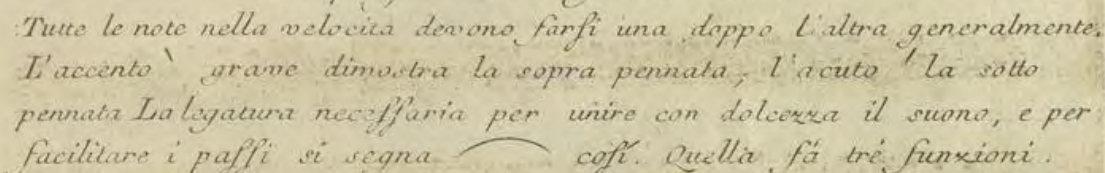 Tutte le note nella velocita devono farſi una doppo l'altra generalmente.
L'accento ` grave dimostra la sopra pennata, l'acuto ´ la sotto
pennata La legatura neceſſaria per unire con dolcezza il suono, e per
facilitare i paſſi si segna ⁀ coſi. Quella fá tré funzioni.